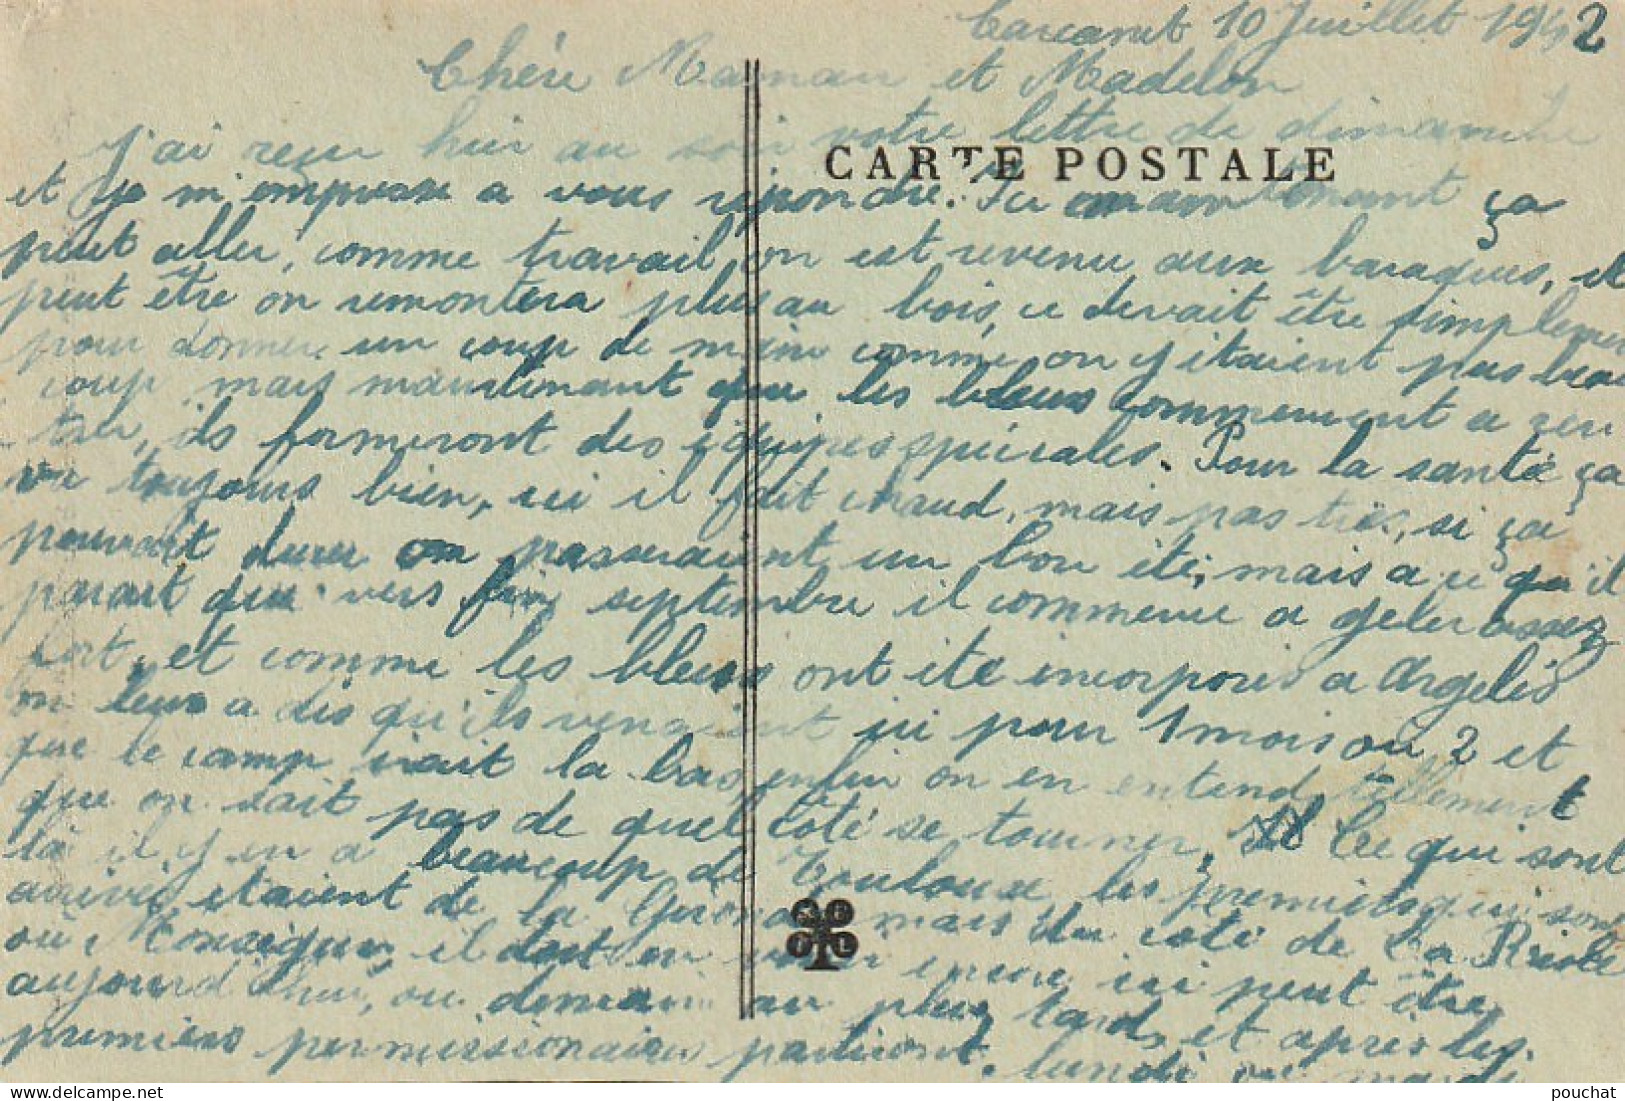 Carcanet 10 Juillet 1942
Chère Maman et Madelon
J'ai reçu hier au soir votre lettre de dimanche
CARTE POSTALE
et je m'empresse a vous répondre. Ici maintenant ça
peut aller, comme travail, on est revenu aux baraques, et
peut être on remontera plus au bois, ce devait être simplement
pour donner un coup de main comme on y étaient pas beau
coup, mais maintenant que les bleus commencent a ren
trer, ils formeront des équipes spéciales. Pour la santé ça
va toujours bien, ici il fait chaud, mais pas très, si ça
pouvait durer on passeraient un bon été, mais a ce qu'il
parait que vers fin septembre il commence a geler assez
fort, et comme les bleus ont été incorporés a Argelès
on leur a dis qu'ils venaient ici pour 1 mois ou 2 et
que le camp irait la bas enfin on en entend tellement
que on sait pas de quel coté se tourner. Ce qui sont
là il y en a beaucoup de Toulouse, les premiers qui sont
arrivés étaient de la Gironde mais du coté de La Réole
ou Monségur, il doit en venir encore ici peut être
aujourd'hui, ou demain au plus tard, et après les
premiers permissionaires partiront. lundi ou mardi
pouchat